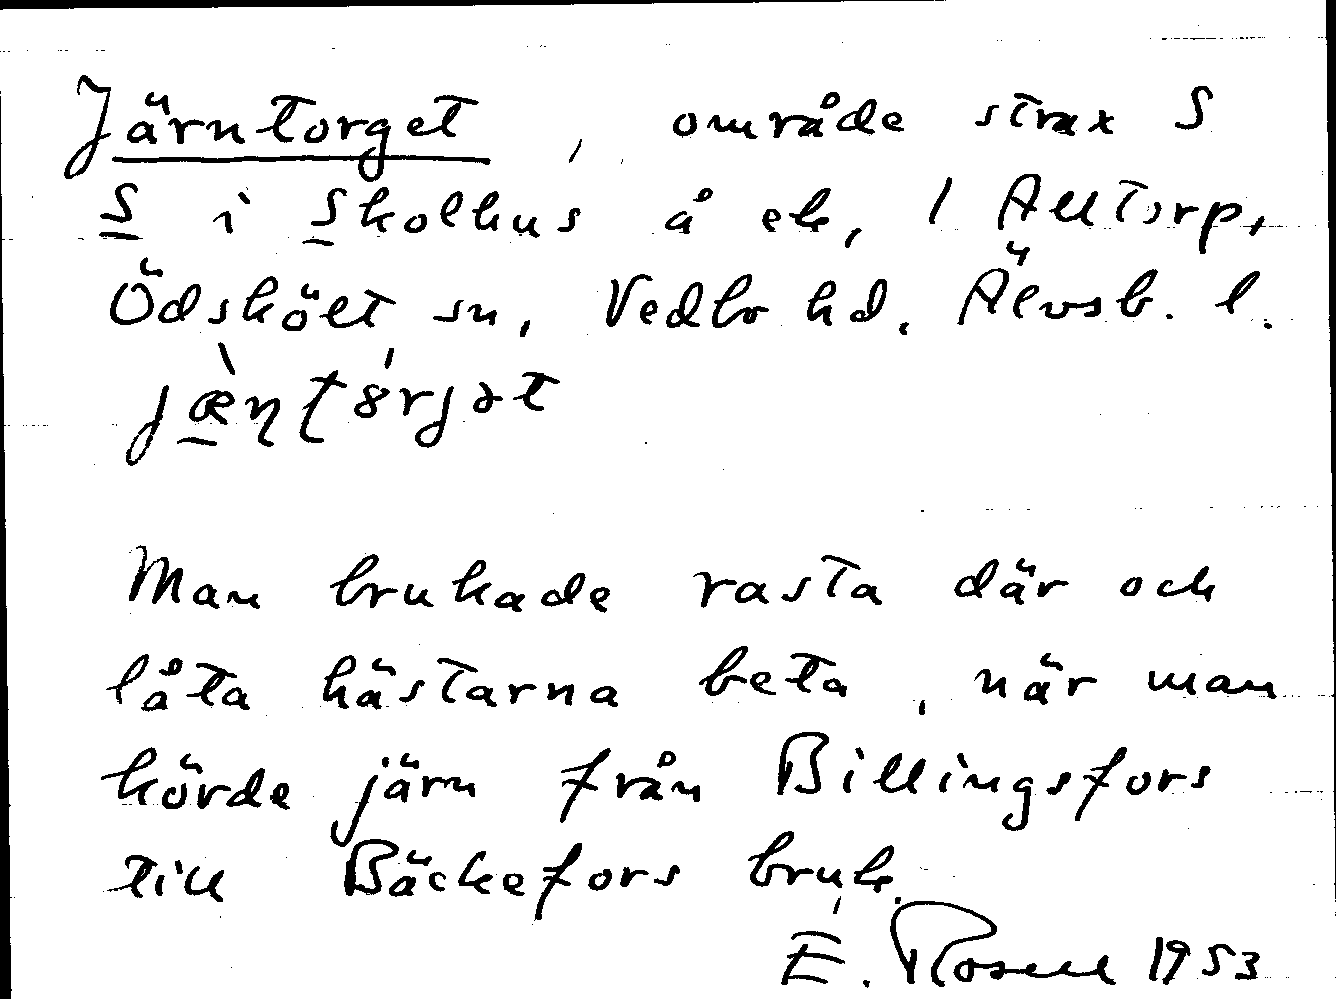 Järntorget, område strax S
S i Skolhus å ek, 1 Alltorp,
Ödskölt sn, Vedbo hd. Älvsb. l.
Man brukade rasta där och
låta hästarna beta, när man
körde järn från Billingsfors
till Bäckefors bruk.
E. Rosell 1953